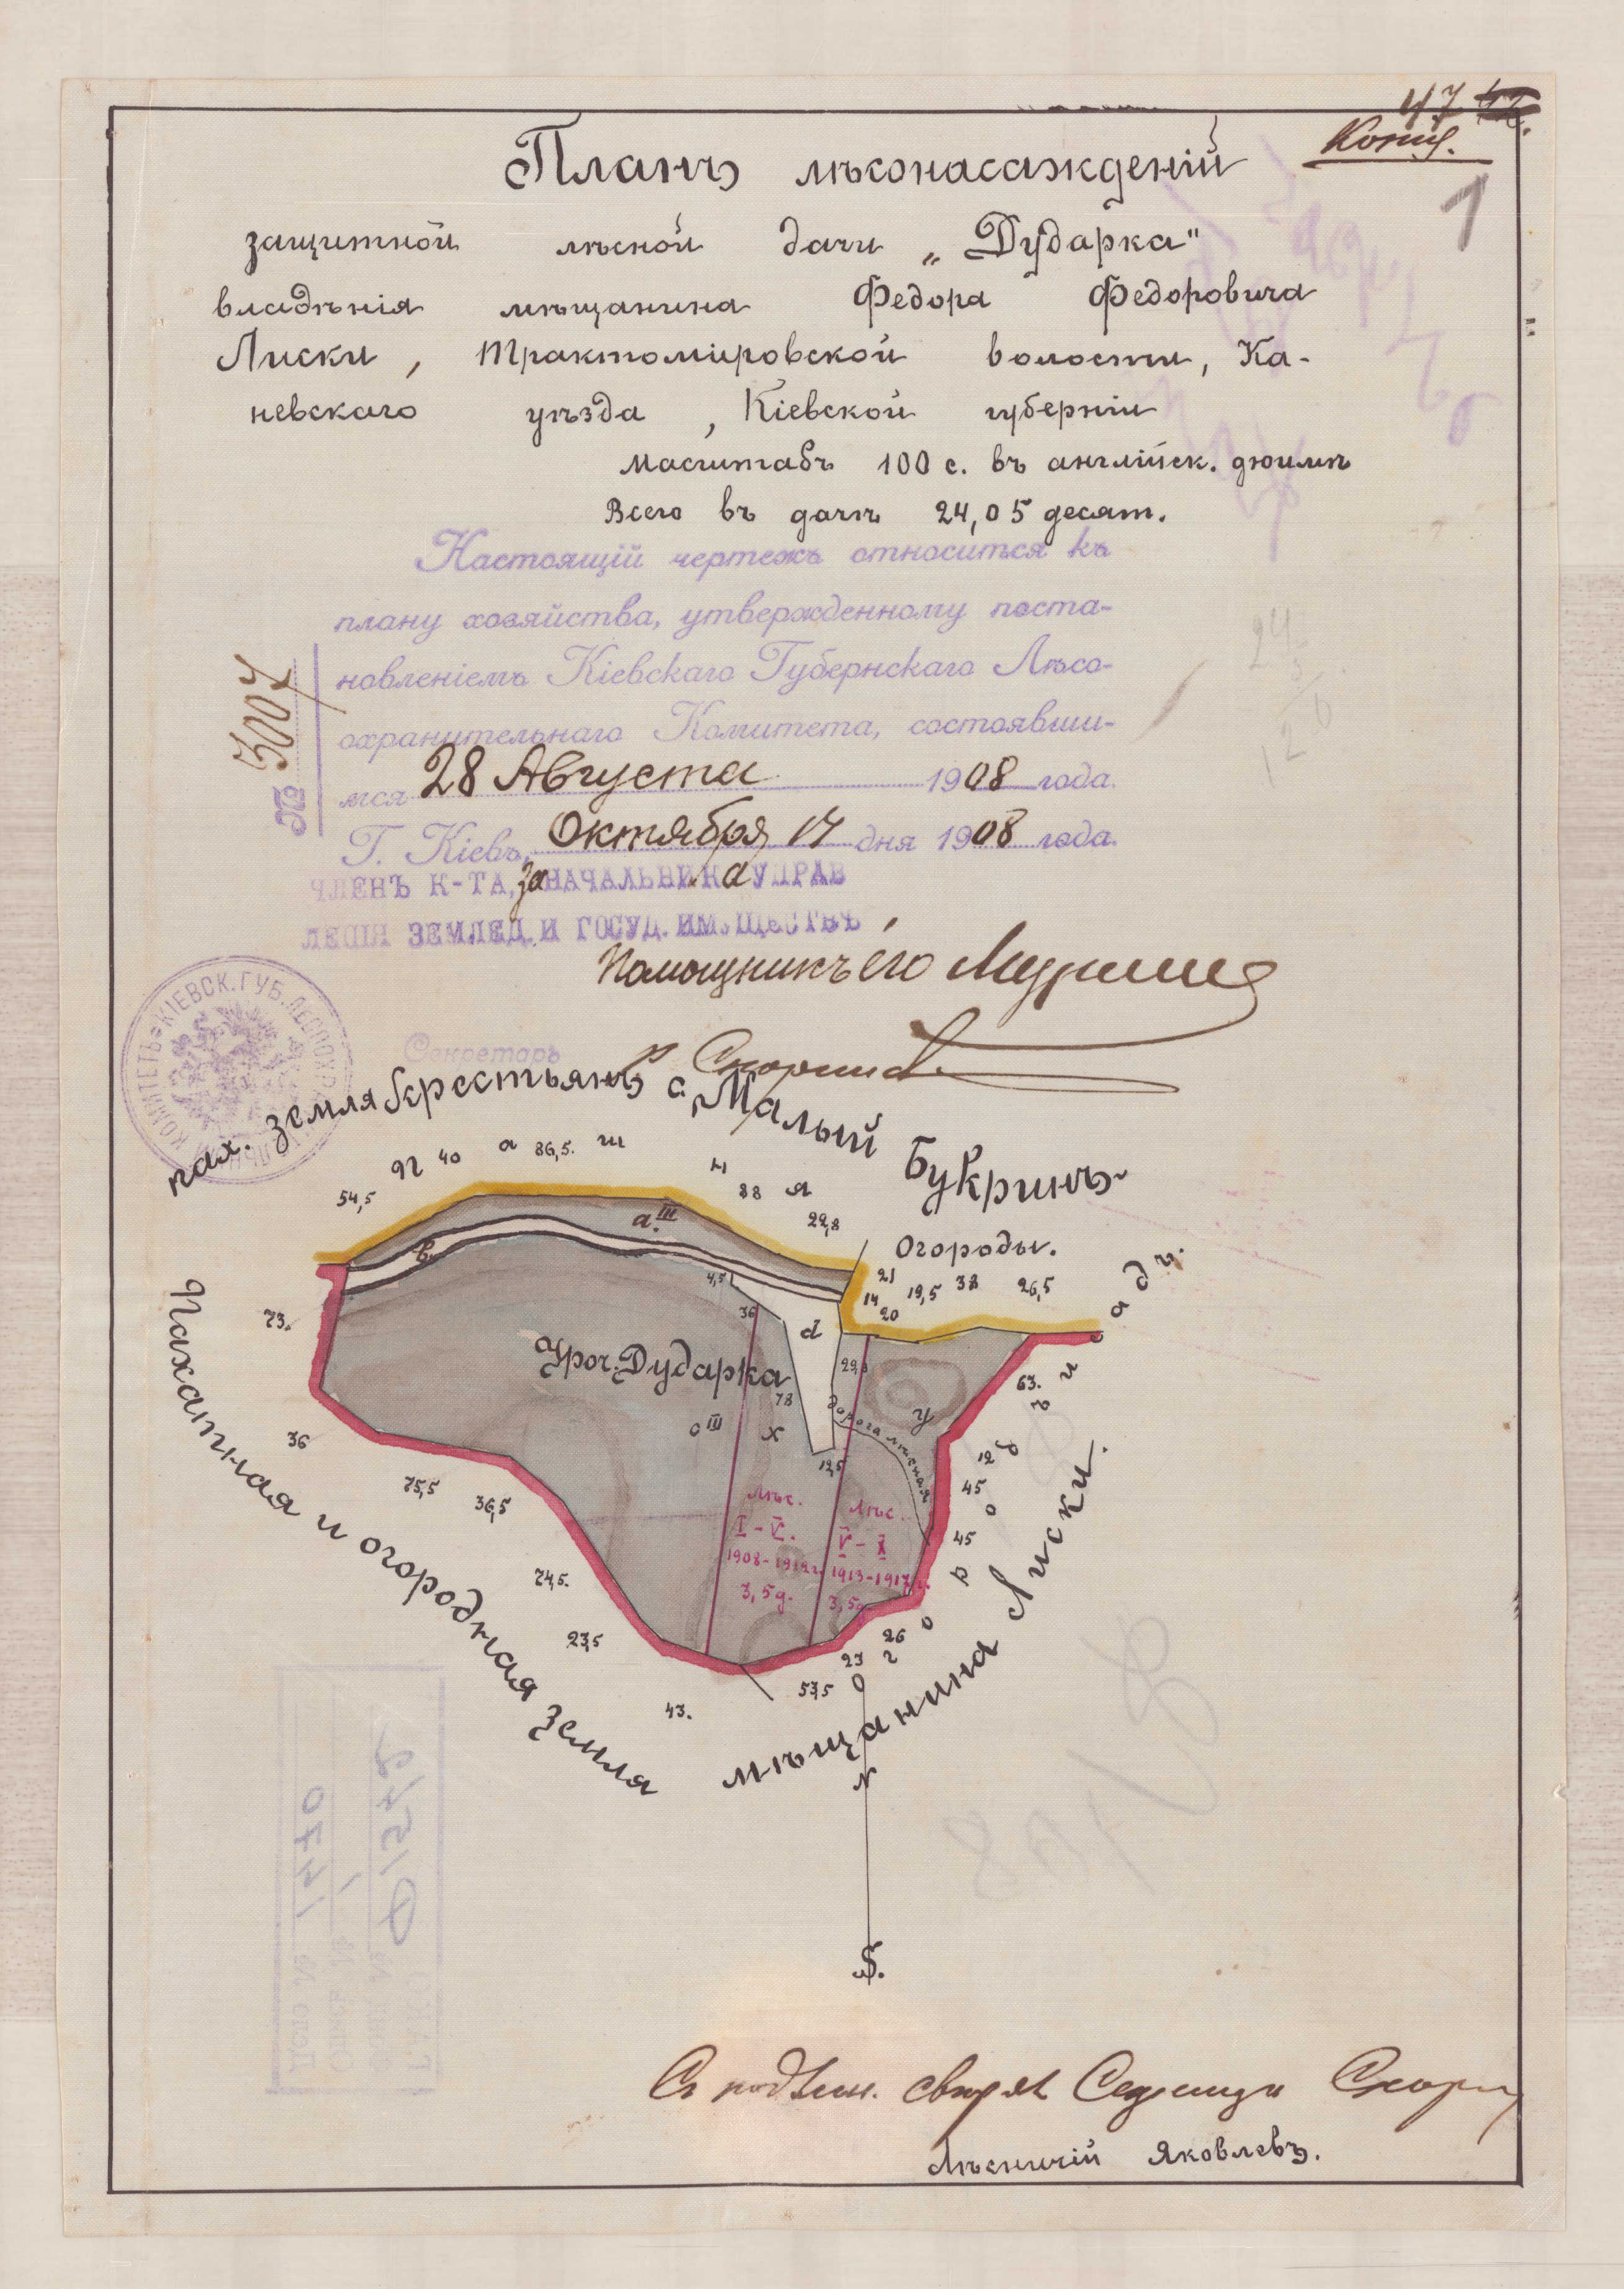 47
Копія.
1
Планъ лѣсонасажденій
защитной лѣсной дачи „Дударка"
владѣнія мѣщанина Федора Федоровича
Лиски, Трактомировской волости, Ка-
невскаго уѣзда, Кіевской губерніи
Масштабъ 100 с. въ англійск. дюймѣ
Всего въ дачѣ 24,05 десят.
Настоящій чертежъ относится къ
плану хозяйства, утвержденному поста-
новленіемъ Кіевскаго Губернскаго Лѣсо-
охранительнаго Комитета, состоявши-
мся 28 Августа 1908 года.
Г. Кіевъ, Октября 17 дня 1908 года.
№ 5007
ЧЛЕНЪ К-ТА, за НАЧАЛЬНИКа УПРАВ
ЛЕНІЯ ЗЕМЛЕД. И ГОСУД. ИМУЩЕСТВЪ
Помощникъ его
Секретарь
пах. земля крестьянъ с. Малый Букринъ
п а ш н я
54,5 40 86,5. 88 29,8
Огороды.
21 14 20 19,5 38 26,5
а.III
в.
4,5
36
d
73.
Уроч. Дударка
78
29,8
дорога лѣсная
у
63.
с III
х
12,5
36
75,5
36,5
74,5.
23,5
43.
53,5
23
26
45
45
12
лѣс.
I - V.
1908-1912 г.
3,5 д.
лѣс.
V - X
1913-1917 г.
3,5 д.
Пахатная и огородная земля
огородъ и сады
мѣщанина Лиски.
N
S.
24
Съ подлин. свѣрял
Лѣсничій Яковлевъ.
1470
1